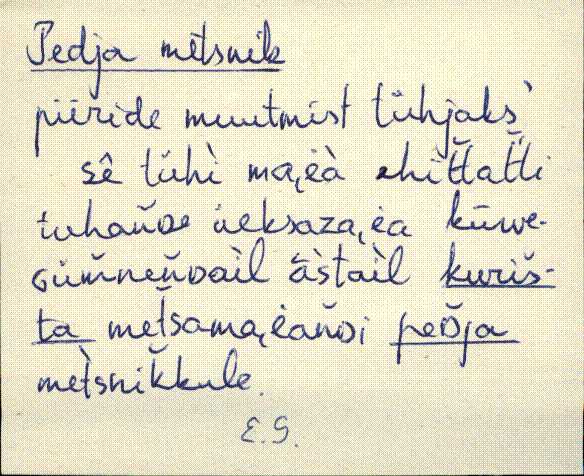 Pedja mètsnik
piiride muutmist tühjaks
sê tühì ma,èà ehìt̆tat̆ti
tuhan̆de üeksaza,èa kūwe-
gümneǹdail āstail kuriš-
ta metsama,èan̆di peďja
mètsnik̆kule.
E.S.